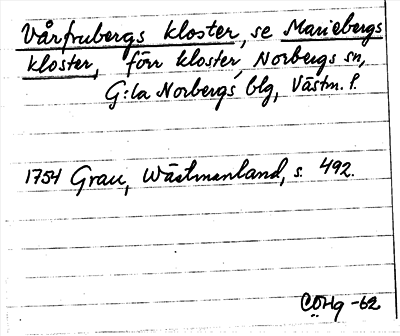 Vårfrubergs kloster, se Mariebergs
kloster, förr kloster, Norbergs sn,
G:la Norbergs blg, Västm. l.
1754 Grau, Wästmanland, s. 492.
CÖHg -62